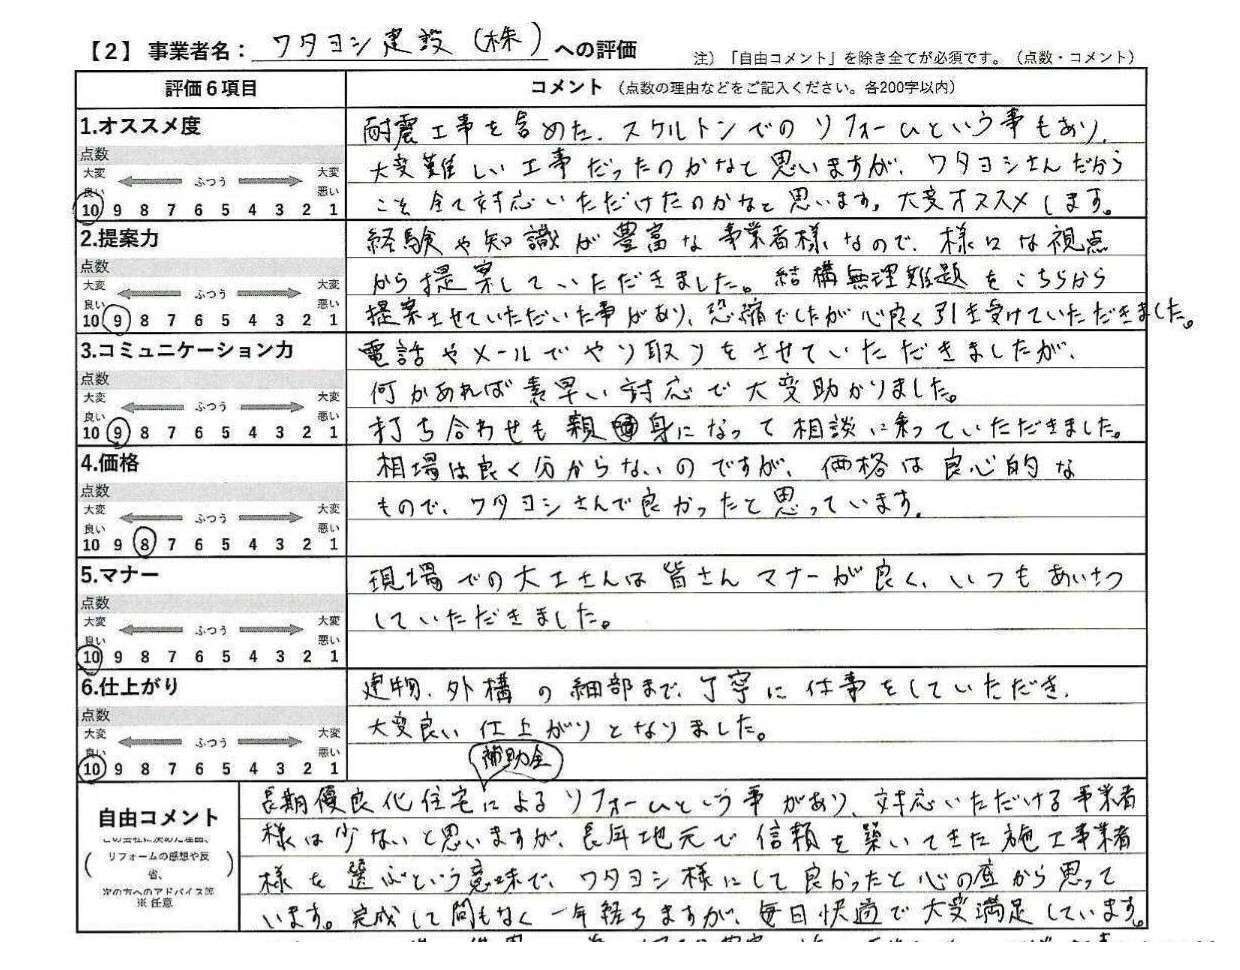 【2】事業者名： ワタヨシ建設（株） への評価
注）「自由コメント」を除き全てが必須です。（点数・コメント）
評価６項目
コメント（点数の理由などをご記入ください。各200字以内）
1.オススメ度
点数
大変 ふつう 大変
良い 悪い
10 9 8 7 6 5 4 3 2 1
耐震工事を含めた、スケルトンでのリフォームという事もあり、
大変難しい工事だったのかなと思いますが、ワタヨシさんだから
こそ全て対応いただけたのかなと思います。大変オススメします。
2.提案力
点数
大変 ふつう 大変
良い 悪い
10 9 8 7 6 5 4 3 2 1
経験や知識が豊富な事業者様なので、様々な視点
から提案していただきました。結構無理難題をこちらから
提案させていただいた事があり、恐縮でしたが心良く引き受けていただきました。
3.コミュニケーション力
点数
大変 ふつう 大変
良い 悪い
10 9 8 7 6 5 4 3 2 1
電話やメールでやり取りをさせていただきましたが、
何かあれば素早い対応で大変助かりました。
打ち合わせも親身になって相談に乗っていただきました。
4.価格
点数
大変 ふつう 大変
良い 悪い
10 9 8 7 6 5 4 3 2 1
相場は良く分からないのですが、価格は良心的な
もので、ワタヨシさんで良かったと思っています。
5.マナー
点数
大変 ふつう 大変
良い 悪い
10 9 8 7 6 5 4 3 2 1
現場での大工さんは皆さんマナーが良く、いつもあいさつ
していただきました。
6.仕上がり
点数
大変 ふつう 大変
良い 悪い
10 9 8 7 6 5 4 3 2 1
建物、外構の細部まで、丁寧に仕事をしていただき、
大変良い仕上がりとなりました。
補助金
自由コメント
リフォームの感想や反
省、
次の方へのアドバイス等
※ 任意
長期優良化住宅によるリフォームという事があり、対応いただける事業者
様は少ないと思いますが、長年地元で信頼を築いてきた施工事業者
様を選ぶという意味で、ワタヨシ様にして良かったと心の底から思って
います。完成して間もなく一年経ちますが、毎日快適で大変満足しています。